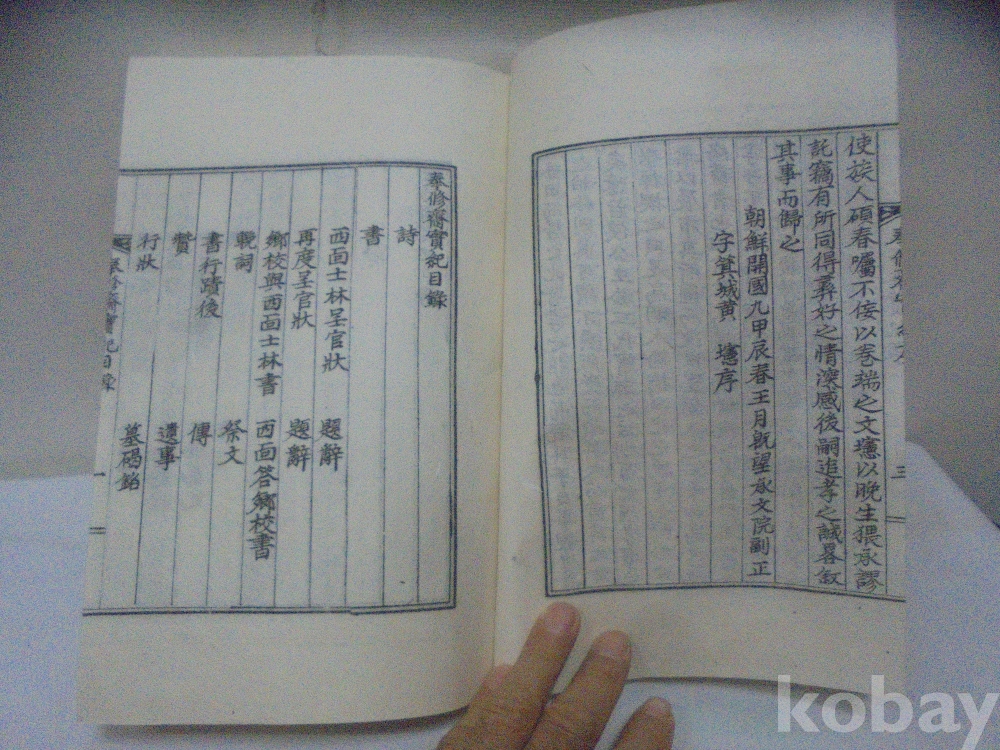 使族人碩春囑不侫以卷端之文瓗以晚生猥承謬
託竊有所同得彛好之情深感後嗣追孝之誠畧敘
其事而歸之
朝鮮開國九甲辰春王月旣望承文院副正
字箕城黃 序
三
奉修齋實紀目錄
詩
書
西面士林呈官狀 題辭
再度呈官狀 題辭
鄉校與西面士林書 西面答鄉校書
輓詞 祭文
書行蹟後 傳
贊 遺事
行狀 墓碣銘
奉修齋實紀目錄
一
kobay